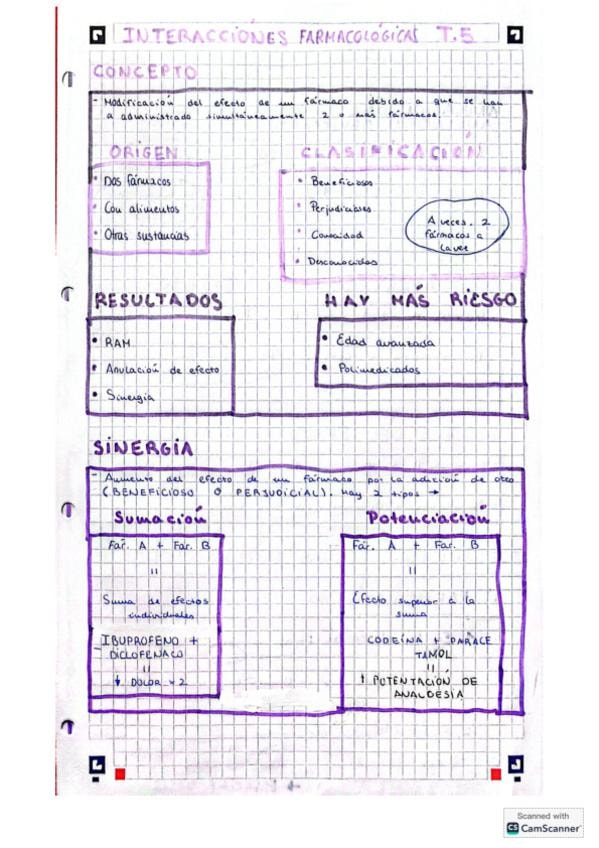 INTERACCIONES FARMACOLÓGICAS T.5
CONCEPTO
- Modificación del efecto de un fármaco debido a que se han
a administrado simultáneamente 2 o más fármacos.
ORIGEN
• Dos fármacos
• Con alimentos
• Otras sustancias
CLASIFICACIÓN
• Beneficiosos
• Perjudiciales
• Desconocidos
A veces. 2
fármacos a
la vez
RESULTADOS
• RAM
• Anulación de efecto
• Sinergia
HAY MÁS RIESGO
• Edad avanzada
• Polimedicados
SINERGIA
- Aumento del efecto de un fármaco por la adición de otro
(BENEFICIOSO O PERJUDICIAL). Hay 2 tipos →
Sumación
Fár. A + Far. B
=
Suma de efectos
individuales
- IBUPROFENO +
DICLOFENACO
=
↓ DOLOR x 2
Potenciación
Far. A + Far. B
=
Efecto superior a la
suma
CODEÍNA + PARACE
TAMOL
=
↑ POTENTACIÓN DE
ANALGESIA
Scanned with
CS CamScanner